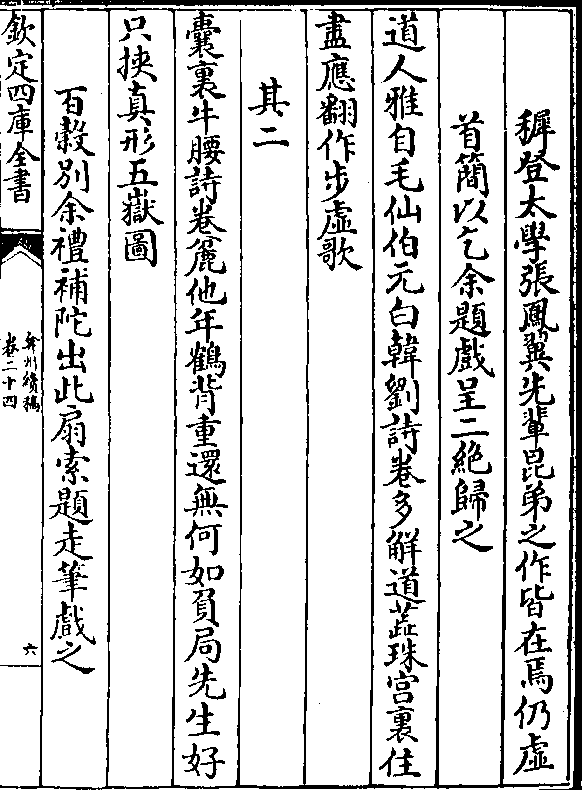 穉登太學張鳳翼先輩昆弟之作皆在焉仍虛
首簡以乞余題戲呈二絶歸之
道人雅自毛仙伯元白韓劉詩卷多解道蕋珠宫裏住
盡應翻作步虛歌
其二
囊裏牛腰詩卷麄他年鶴背重還無何如負局先生好
只挾真形五嶽圖
百榖别余禮補陀出此扇索題走筆戲之
欽定四庫全書
弇州續稿
卷二十四
六